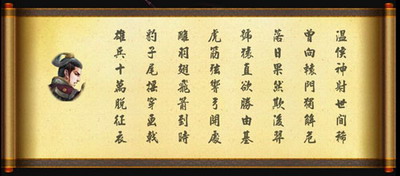 溫侯神射世間稀
曾向轅門獨解危
落日果然欺後羿
號猿直欲勝由基
虎筋弦響弓開處
雕羽翅飛箭到時
豹子尾搖穿畫戟
雄兵十萬脫征衣